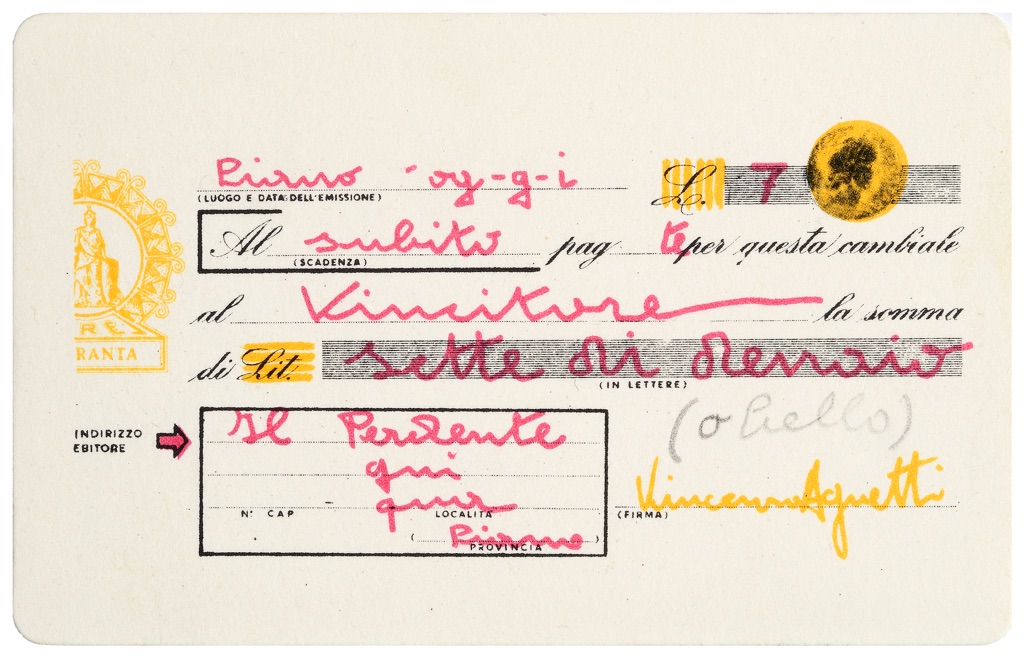 Piano og-g-i L. 7
(LUOGO E DATA DELL'EMISSIONE)
Al subito pag te per questa cambiale
(SCADENZA)
al Vincitore la somma
di Lit. sette di denaio
(IN LETTERE)
(o bello)
RE
RANTA
INDIRIZZO
EBITORE
Il Perdente
qui
qua
N° CAP LOCALITÀ
(Piano)
PROVINCIA
Vincenzo Agnetti
(FIRMA)